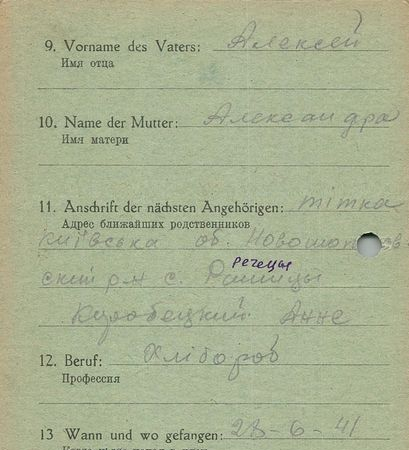 9. Vorname des Vaters: Алексей
Имя отца
10. Name der Mutter: Александра
Имя матери
11. Anschrift der nächsten Angehörigen: тітка
Адрес ближайших родственников
Київська об. Новошеп
Речецы
ский р-н с.
Анне
12. Beruf: Хлібороб
Профессия
13 Wann und wo gefangen: 28-6-41